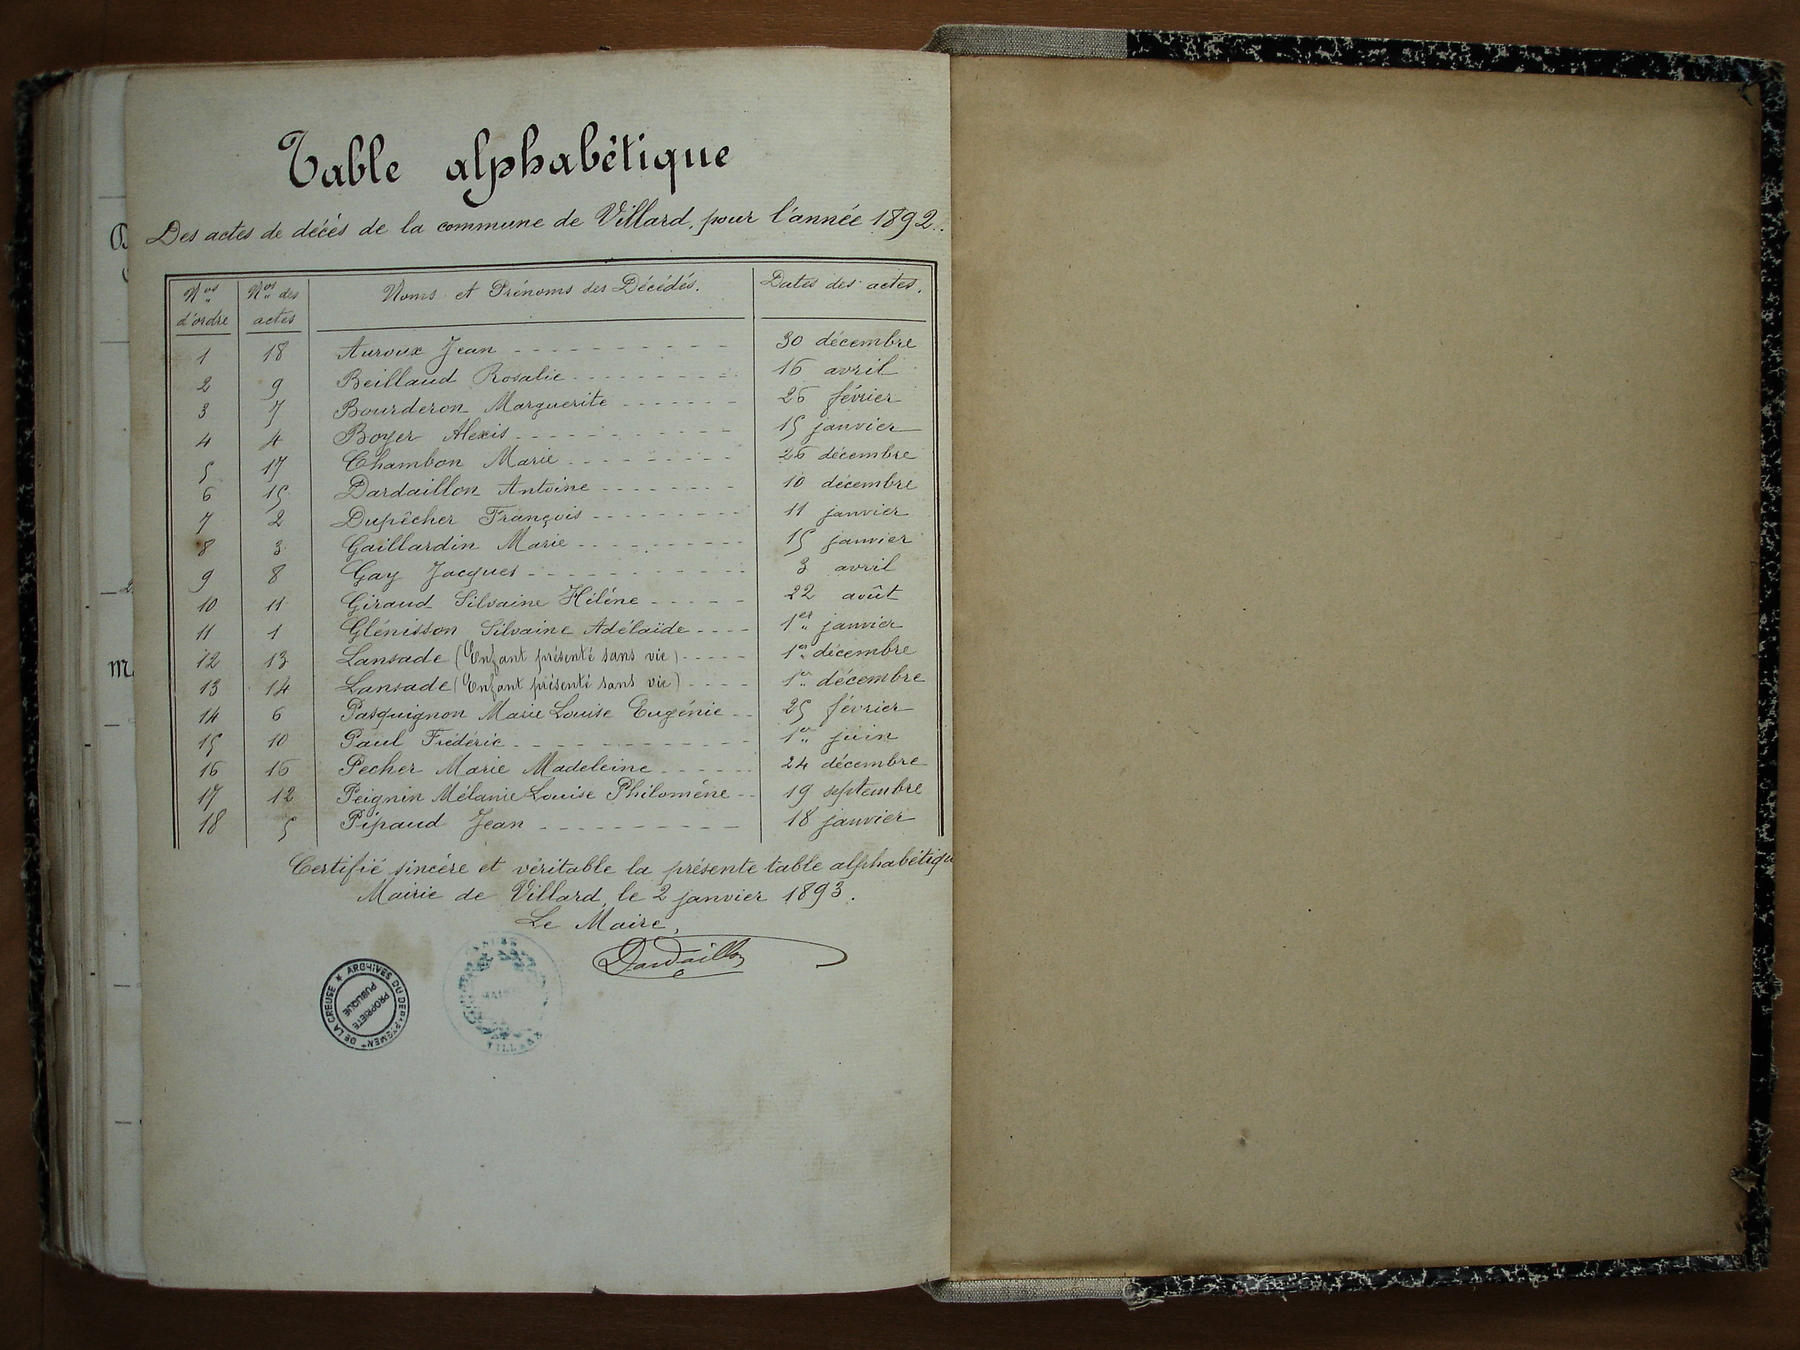 Table alphabétique
Des actes de décès de la commune de Villard, pour l'année 1892.
Nos d'ordre | Nos des actes | Noms et Prénoms des Décédés. | Dates des actes.
1 18 Auroux Jean 30 décembre
2 9 Beillaud Rosalie 16 avril
3 7 Bourderon Marguerite 26 février
4 4 Boyer Alexis 15 janvier
5 17 Chambon Marie 26 décembre
6 15 Dardaillon Antoine 10 décembre
7 2 Dupêcher François 11 janvier
8 3 Gaillardin Marie 15 janvier
9 8 Gay Jacques 3 avril
10 11 Giraud Silvaine Hélène 22 août
11 1 Glénisson Silvaine Adélaïde 1er janvier
12 13 Lansade (Enfant présenté sans vie) 1er décembre
13 14 Lansade (Enfant présenté sans vie) 1er décembre
14 6 Pasquignon Marie Louise Eugénie 25 février
15 10 Paul Frédéric 1er juin
16 16 Pecher Marie Madeleine 24 décembre
17 12 Peignin Mélanie Louise Philomène 19 septembre
18 5 Pipaud Jean 18 janvier
Certifié sincère et véritable la présente table alphabétique
Mairie de Villard, le 2 janvier 1893.
Le Maire,
Dardaillon
ARCHIVES DU DEPARTEMENT DE LA CREUSE
PROPRIETE PUBLIQUE
VILLARD